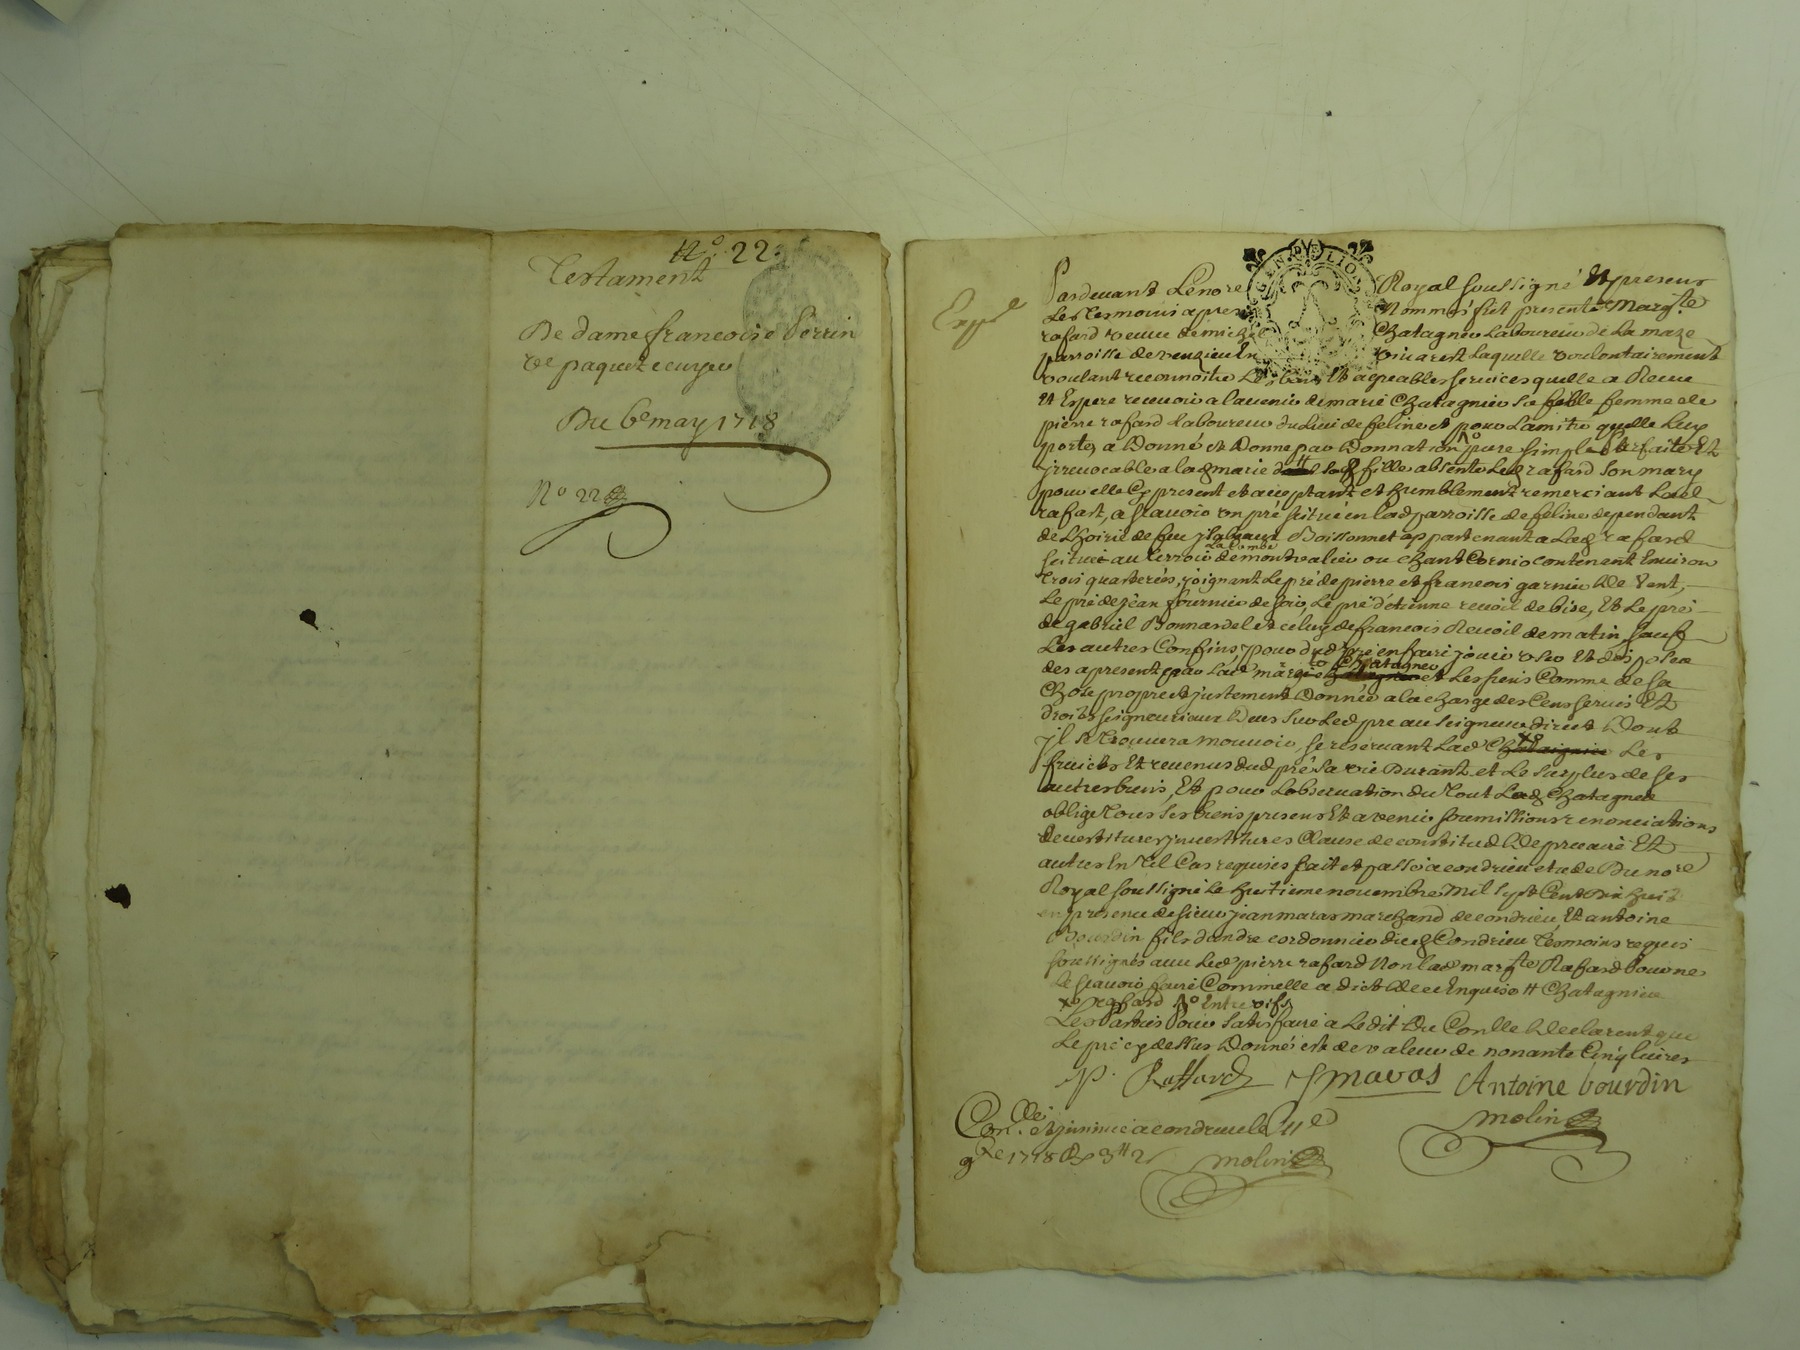 N.o 22.
Testament
De dame francoise Perrin
ve paquet ecuyer
Du 6e may 1718
No 22
Expé
GEN DE LION
Pardevant Le no.re Royal soussigné Et presens
Les tesmoins apres Nommés fut presente Marg.te
rafard veuve de michel Chatagnier Laboureur de La maze
parroisse de venzieu En vivarest Laquelle voulontairement
voulant reconnoitre Les bons Et agreables services quelle a Receu
Et Espere recevoir a lavenir de marie Chatagnier sa fille femme de
pierre rafard Laboureur du Lieu de feline et pour Lamitié quelle Luy
porte, a Donné et Donne par Donnation pure simple Parfaite Et
jrrevocable a lad marie sad fille absente Led rafard son mary
pour elle Cy present et acceptant et humblement remerciant Lad
rafart, a scavoir un pré scitué en lad parroisse de feline dependant
de Lhoirie de feu Boissonnet appartenant a Lad rafard
scitué au terroir de La Combe montvalier ou chant Cornio contenent Environ
trois quarterées, joignant Le pré de pierre et francois garnier de Vent,
Le pré de jean fournier de soir, Le pré d'etienne revoil de bise, Et Le pré
de gabriel Bonnardel et celuy de francois Revoil de matin, sauf
Les autres Confins, pour dud pré en faire jouir user Et disposer
des apresent par Lad marie Chatagner et Les siens Comme de sa
Chose propre et justement Donnée a la charge des Cens servis Et
droits seigneuriaux Deus sur Led pre au seigneur direct Dont
jl se trouvera mouvoir, se reservant Lad Les
fruicts Et revenus dud pré sa vie Durant et Le surplus de ses
autres biens, Et pour Lobservation du tout Lad Chatagner
oblige tous ses biens presens Et avenir soumissions renonciations
devestitures jnvestitures Clause de constitud De precaire Et
autres En tel Cas requises fait et passé a condrieu etude Du no.re
Royal soussigné Le huitieme novembre Mil sept Cent Dix huit
en presence de sieur jean maras marchand de condrieu, Et antoine
Bourdin fils dandre cordonnier dud Condrieu tesmoins requis
soussignés avec Led pierre rafard Non lad marg.te Rafard Pour ne
Le scavoir faire Comme elle a dict De ce Enquise # Chatagnier
xo rafard No Entre vifs
Les Parties Pour satisfaire a Ledit Du Con.lle Declarent que
Le pré cy dessus Donné est de valeur de nonante Cinq livres
P. Raffard J maras Antoine bourdin
Con.lé et jnsinué a condrieu le 11e molin
9.re 1718 R 3# 2 molin